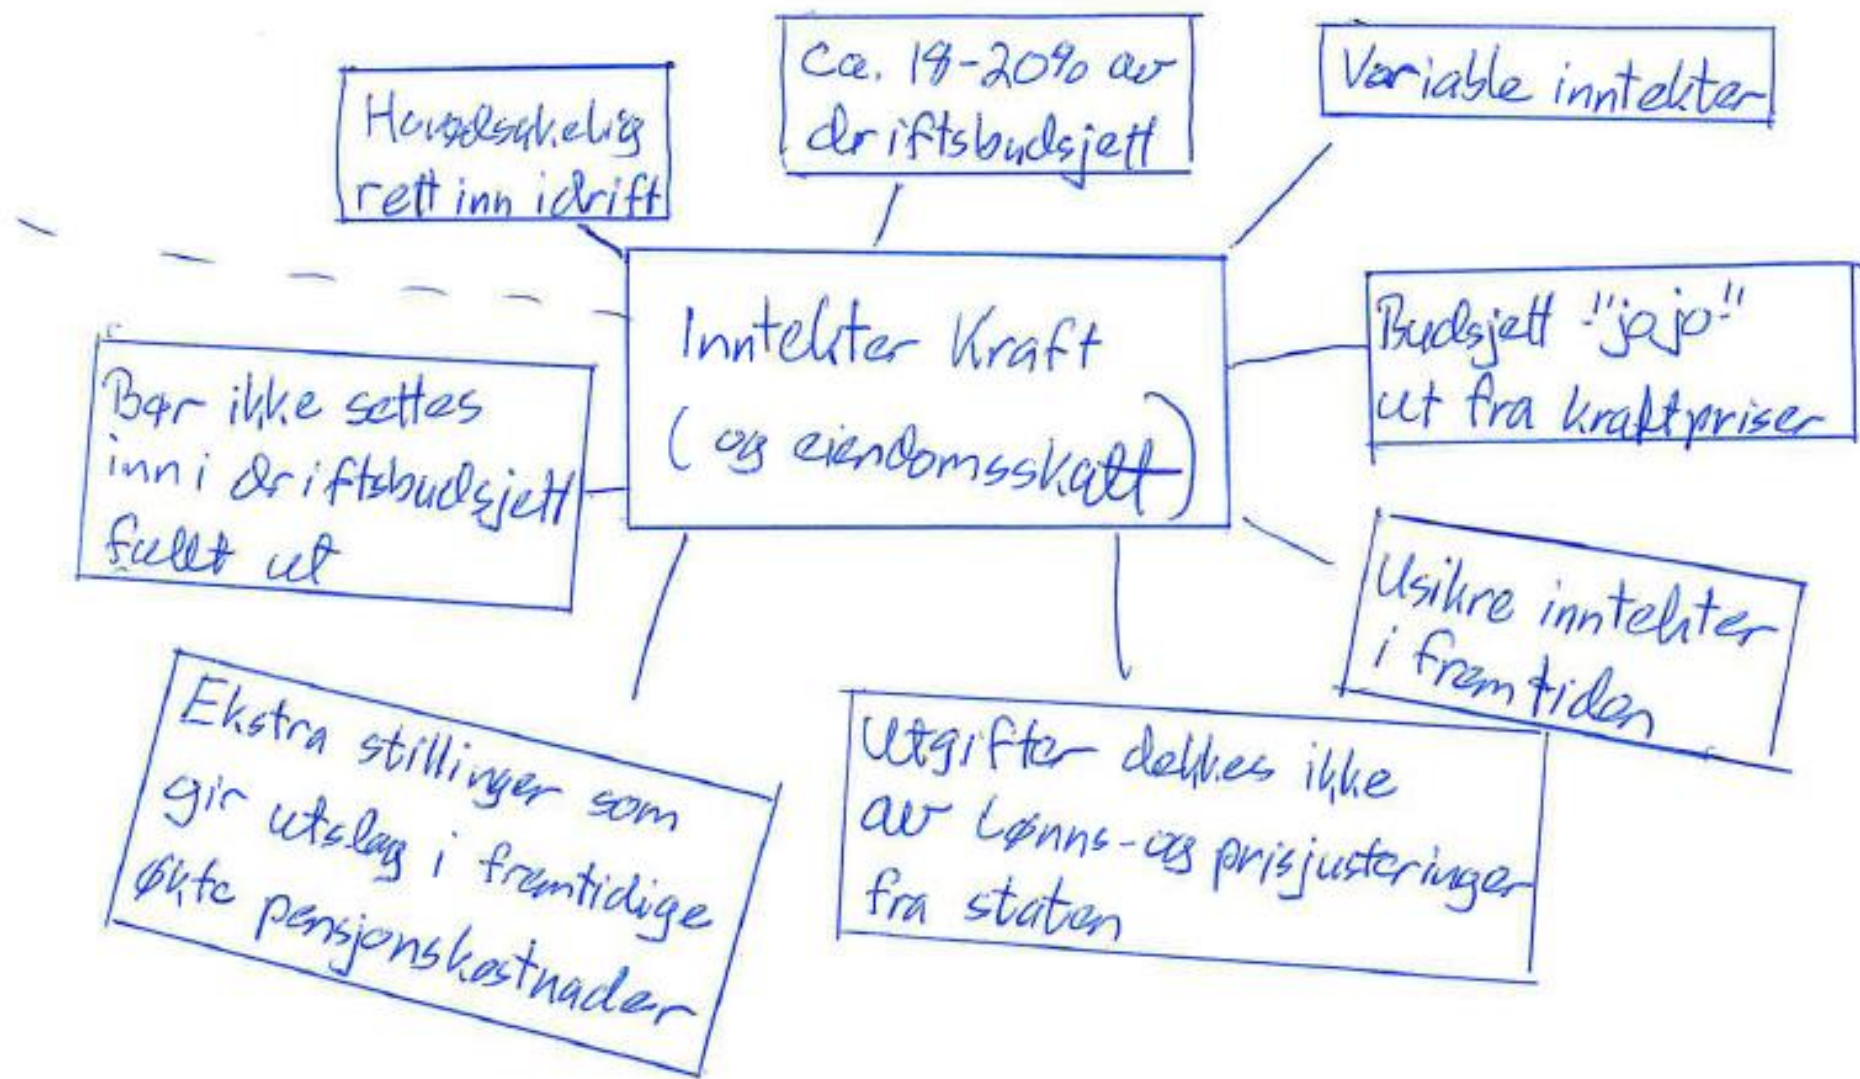 Hovedsakelig
rett inn i drift
Ca. 18-20% av
driftsbudsjett
Variable inntekter
Inntekter Kraft
(og eiendomsskatt)
Budsjett "jojo"
ut fra kraftpriser
Bør ikke settes
inn i driftsbudsjett
fullt ut
Usikre inntekter
i fremtiden
Ekstra stillinger som
gir utslag i fremtidige
økte pensjonskostnader
Utgifter dekkes ikke
av Lønns-og prisjusteringer
fra staten